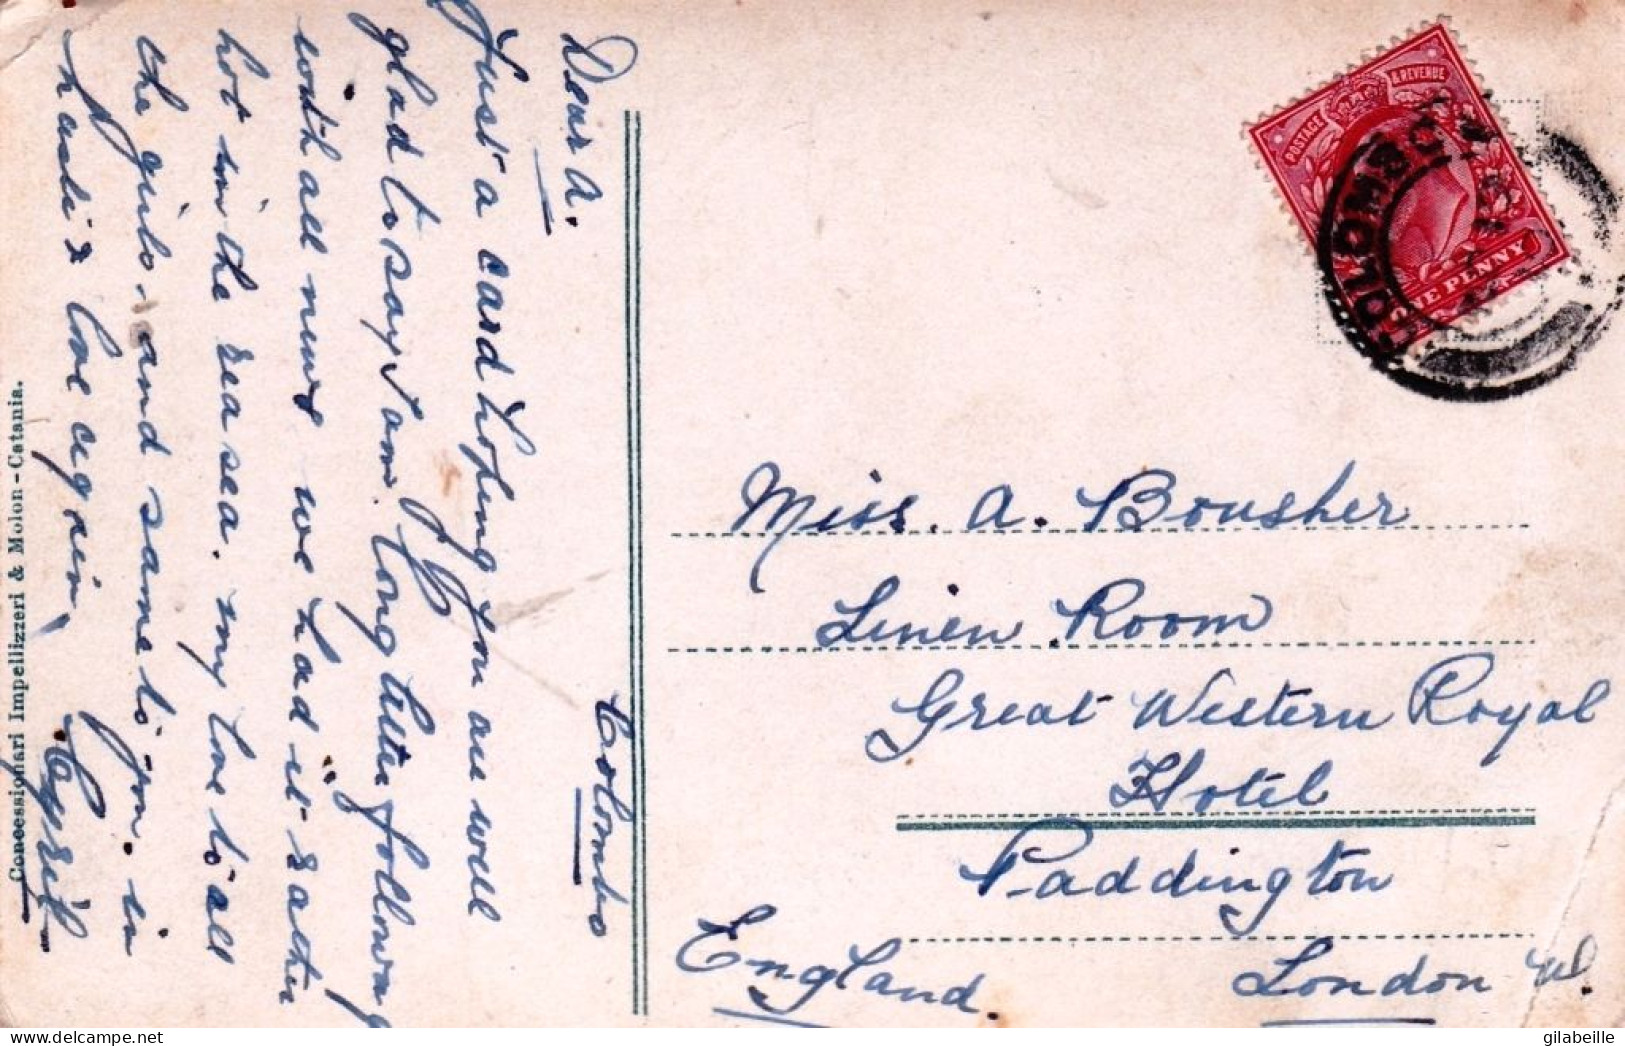 Colombo
Dear A.
Just a card hoping you are well
glad to say I am. long letter following
with all news we had it rather
hot in the rea sea. my love to all
the girls. and same to you. in
haste love again,
Cyril
Concessionari Impellizzeri & Molon - Catania.
POSTAGE & REVENUE
ONE PENNY
COLOMBO
Miss. A. Bousher
Linen Room
Great Western Royal
Hotel
Paddington
London W.
England.
delcampe.net
gilabeille